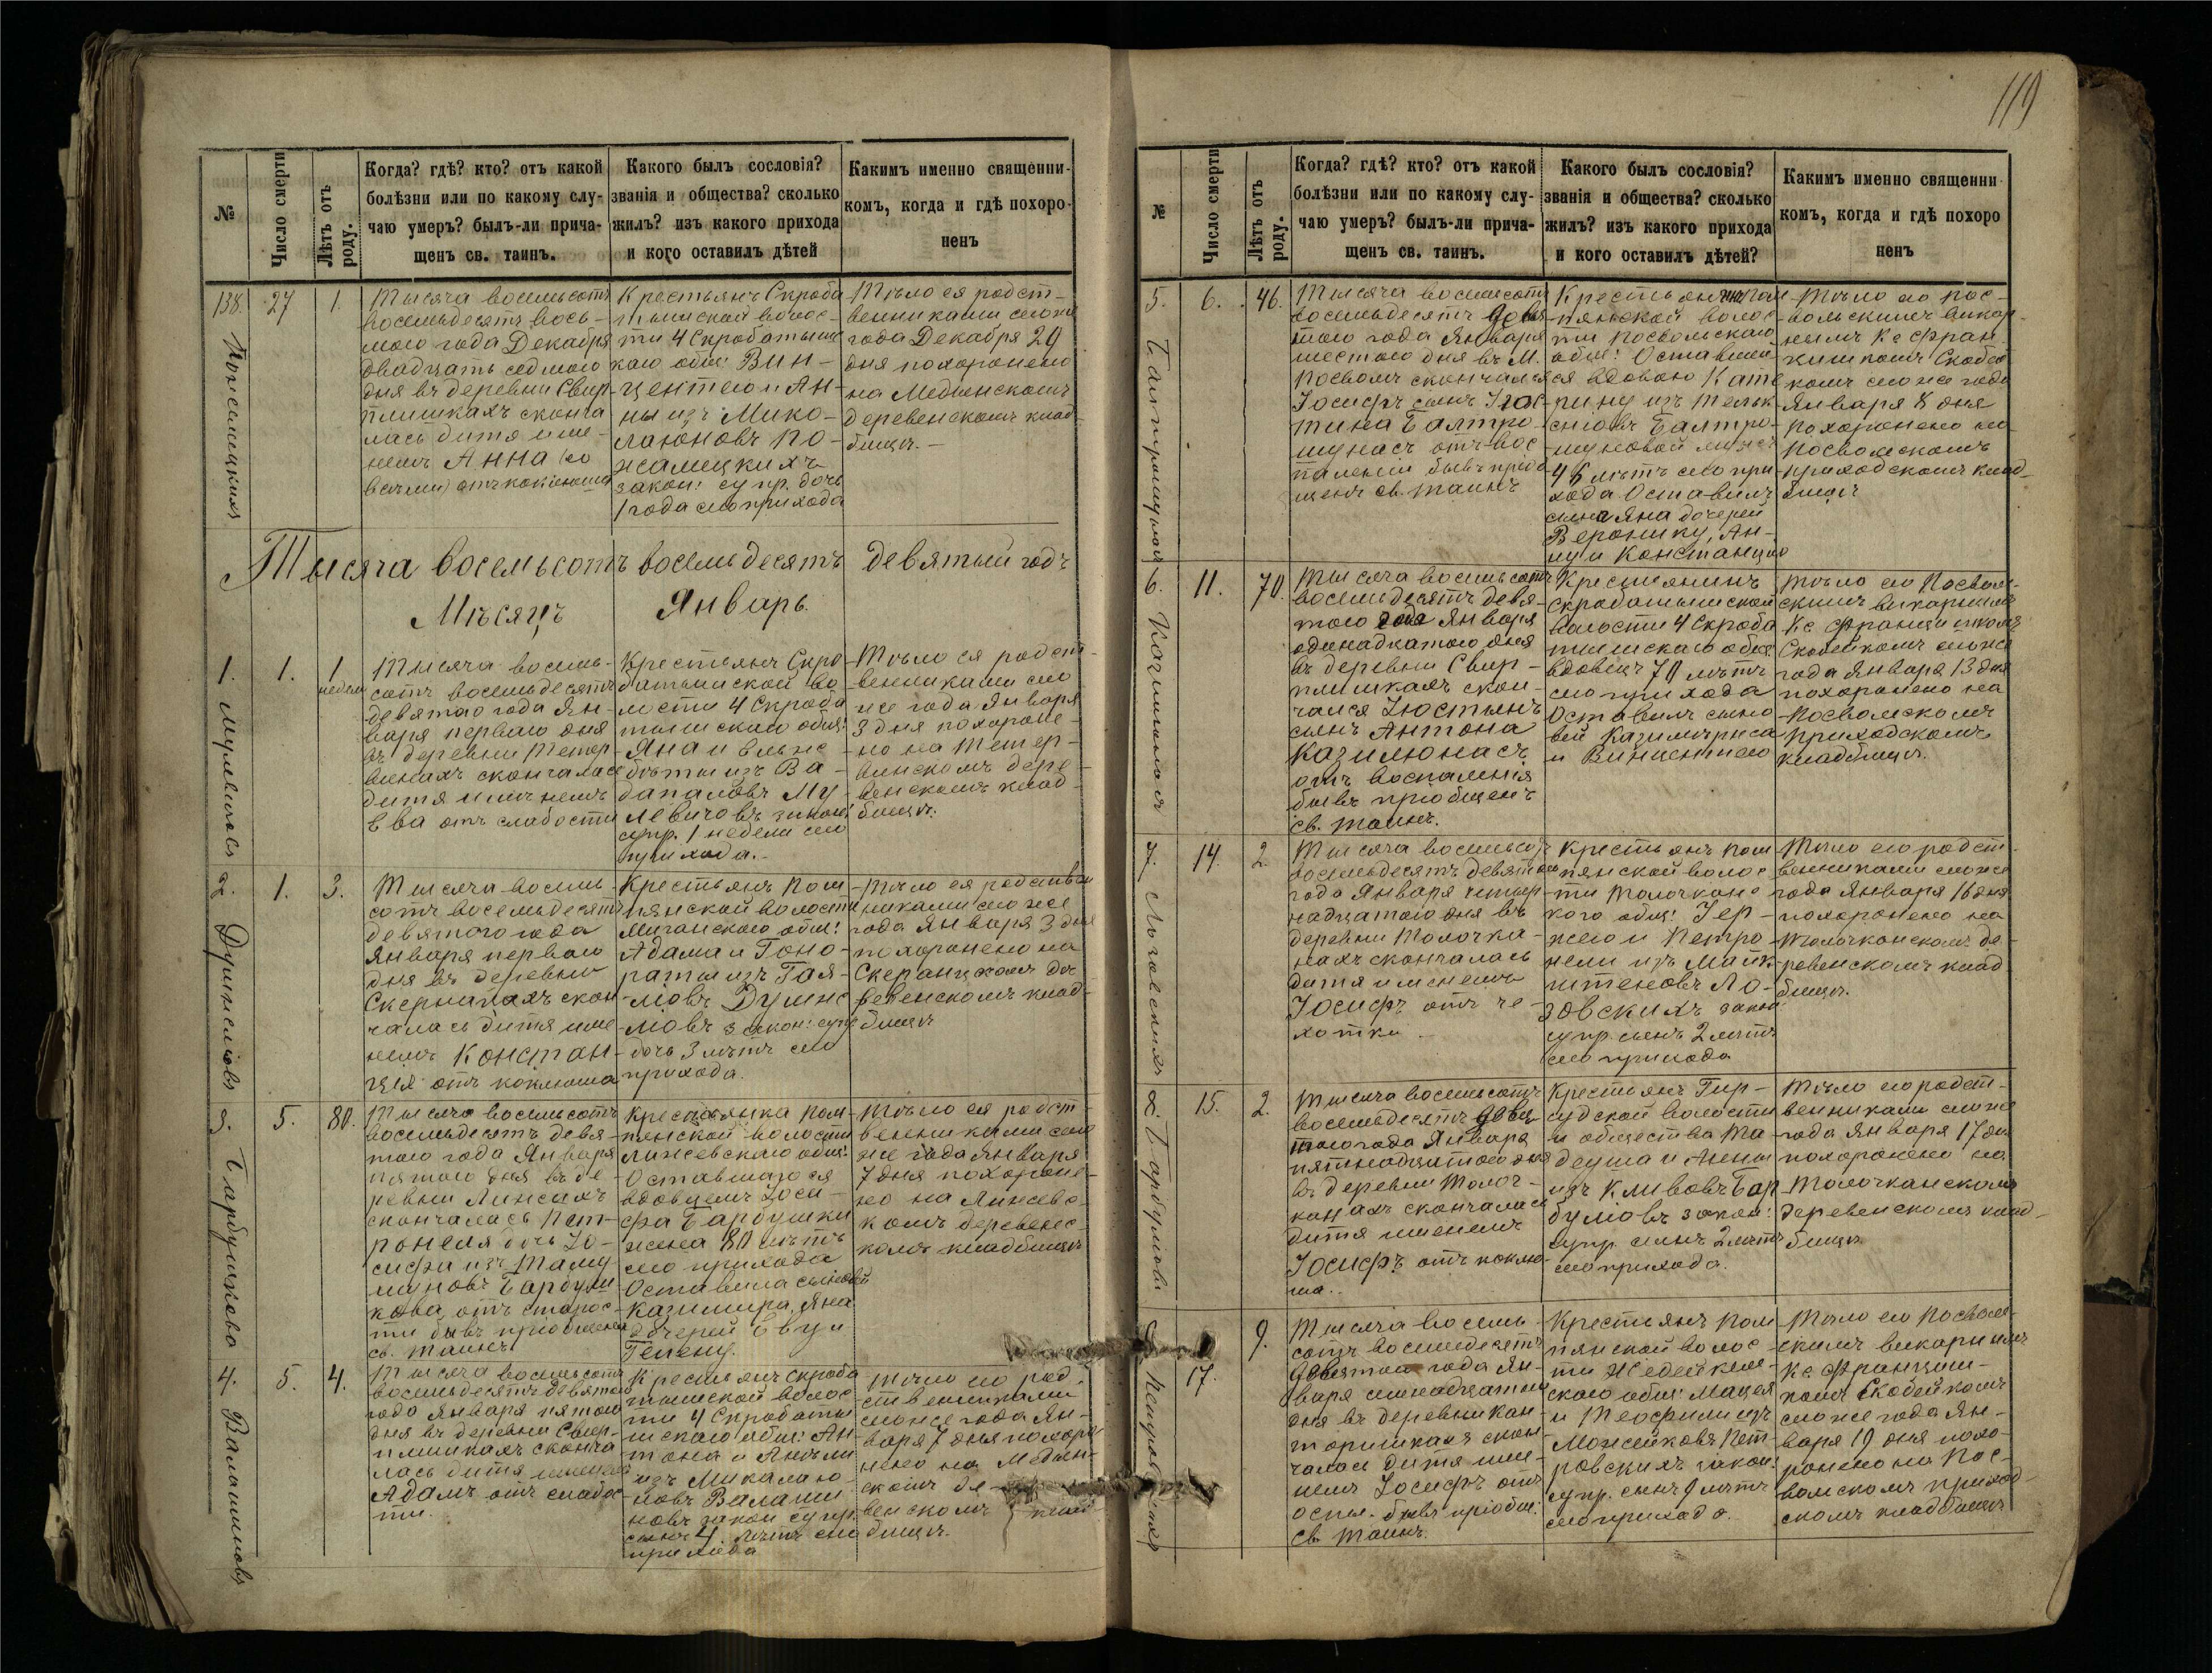 119
№
Число смерти
Лѣтъ отъ роду.
Когда? гдѣ? кто? отъ какой
болѣзни или по какому слу-
чаю умеръ? былъ-ли прича-
щенъ св. таинъ.
Какого былъ сословія?
званія и общества? сколько
жилъ? изъ какого прихода
и кого оставилъ дѣтей
Каким именно священни-
комъ, когда и гдѣ похоро-
ненъ
138.
27
1.
Тысяча восемьсотъ
восемьдесятъ вось-
мого года Декабря
двадцать седмого
дня въ деревни Свир-
плишкахъ сконча
лась дитя име-
немъ Анна
Крестьянъ Скроба
тышской волос-
ти 4 Скробатышс
каго общ: Вин-
центаго и Ан-
ны изъ Мико-
лаюновъ По-
жамецкихъ
закон: супр. дочь
1 года сего прихода
Тѣло ея родст-
венниками сего же
года Декабря 29
дня похоронено
на Медшенскомъ
деревенскомъ клад-
бищѣ.-
Тысяча восемьсотъ восемьдесятъ девятый годъ
Мѣсяцъ Январь.
1.
1.
1
недел
Тысяча восемь-
сотъ восемьдесятъ
девятаго года Ян-
варя перваго дня
въ деревни Тетер-
винахъ скончалась
дитя именемъ
Ева отъ слабости
Крестьянъ Скро
батышской во
лости 4 Скроба
тышскаго общ:
Яна и Ельже
бѣты изъ Ва-
папаловъ Му-
левичовъ закон:
супр. 1 недели сего
прихода.-
Тѣло ея родст
венниками сего
же года Января
3 дня похороне-
но на Тетер-
винскомъ дере-
венскомъ клад-
бищѣ.
2.
1.
3.
Тысяча восемь-
сотъ восемьдесятъ
девятого года
Января перваго
дня въ деревни
скон
чалась дитя име
немъ Констан-
ція отъ коклюша
Крестьянъ Пом
пянской волости
общ:
Адама и Гоно-
раты изъ Гая-
ловъ
закон: супр
дочь 3 лѣтъ сего
прихода.
Тѣло ея родствен
никами сего же
года Января 3 дня
похоронено на
де
ревенскомъ клад-
бищѣ
3.
5.
80.
Тысяча восемьсотъ
восемьдесятъ девя-
того года Января
пятого дня въ де
ревни Линсахъ
скончалась Пет-
ронеля дочь Іо-
сифа изъ
Барбуш
кова, отъ старос-
ти бывъ пріобщена
св. таинъ
Крестьянка Пом-
пянской волости
общ:
Оставшагося
вдовцемъ Іоси-
фа Барбушки
жена 80 лѣтъ
сего прихода
Оставила сыновей
Казимира, Яна
дочерей Еву и
Гелену.
Тѣло ея родст-
венниками сего
же года Января
7 дня похороне-
но на
комъ деревенс-
комъ кладбищѣ
4.
5.
4.
Тысяча восемьсотъ
восемьдесятъ девятого
года Января пятого
дня въ деревни Свир-
плишкахъ сконча
лась дитя именемъ
Адамъ отъ слабос
ти.
Крестьянъ Скроба
тышской волос
ти 4 Скробаты
шскаго общ: Ан-
тона и Анели
изъ Миколаю-
новъ Валаши
новъ закон супр.
сынъ 4 лѣтъ сего
прихода
Тѣло его род-
ственниками
сего же года Ян-
варя 7 дня похоро
нено на Медшен-
скомъ де-
венскомъ клад-
бищѣ.
№
Число смерти
Лѣтъ отъ роду.
Когда? гдѣ? кто? отъ какой
болѣзни или по какому слу-
чаю умеръ? былъ-ли прича-
щенъ св. таинъ.
Какого былъ сословія?
званія и общества? сколько
жилъ? изъ какого прихода
и кого оставилъ дѣтей?
Каким именно священни
комъ, когда и гдѣ похоро
ненъ
5.
6.
46.
Тысяча восемьсотъ
восемьдесятъ девя
того года Января
шестого дня въ М.
Посволъ скончался
Іосифъ сынъ Іюс-
тина Балтро
шунасъ отъ вос
паленія бывъ пріоб
щенъ св. таинъ
Крестьянинъ Пом
пянской волос
ти Посвольскаго
общ: Оставши
ся вдовою Кате
рину изъ
Балтро-
шуновой мужъ
46 лѣтъ сего при
хода Оставилъ
сына Яна дочерей
Веронику, Ан-
ну и Констанцію
Тѣло его Пос-
вольскимъ викар
нымъ Кс Фран
кишкомъ Скобей
комъ сего же года
Января 8 дня
похоронено на
Посвольскомъ
приходскомъ клад-
бищѣ
6.
11.
70.
Тысяча восемьсотъ
восемьдесятъ девя-
того года Января
одинадцатого дня
въ деревни Свир-
плишкахъ скон-
чался Іюстынъ
сынъ Антона
Казилюнасъ
отъ воспаленія
бывъ пріобщенъ
св. таинъ.
Крестьянинъ
Скробатышской
волости 4 Скроба
тышскаго общ:
вдовецъ 70 лѣтъ
сего прихода
Оставилъ сыно
вей Казимѣриса
и Винцентаго
Тѣло его Посволь-
скимъ викарнымъ
Кс Францишкомъ
Скобейкомъ сего же
года Января 13 дня
похоронено на
Посвольскомъ
приходскомъ
кладбищѣ.
7.
14.
2.
Тысяча восемьсотъ
восемьдесятъ девятого
года Января четыр
надцатого дня въ
деревни Толочка-
нахъ скончалась
дитя именемъ
Іосифъ отъ че-
хотки.
Крестьянъ Пом
пянской волос
ти Толочканс
кого общ: Гер-
жего и Петро
нели изъ Майк
штеновъ Ло-
зовскихъ закон
супр. сынъ 2 лѣтъ
сего прихода
Тѣло его родст-
венниками сего же
года Января 16 дня
похоронено на
Толочканскомъ де-
ревенскомъ клад
бищѣ.
8.
15.
2.
Тысяча восемьсотъ
восемьдесятъ девя
того года Января
пятнадцатого дня
въ деревни Толоч-
канахъ скончалась
дитя именемъ
Іосифъ отъ коклю-
ша..
Крестьянъ Гир-
судской волости
и общества Та-
деуша и Анны
изъ Кливовъ Бар
буловъ закон:
супр. сынъ 2 лѣтъ
сего прихода.
Тѣло его родст-
венниками сего же
года Января 17 дня
похоронено на
Толочканскомъ
деревенскомъ клад-
бищѣ.
17.
9.
Тысяча восемь-
сотъ восемьдесятъ
девятого года Ян-
варя семнадцатого
дня въ деревни Кан-
торишкахъ скон
чалось дитя име-
немъ Іосифъ отъ
оспы. бывъ пріобщ:
св. таинъ.
Крестьянъ Пом
пянской волос
ти
скаго общ: Мацея
и Теофили изъ
Можейковъ Пет-
ровскихъ закон:
супр. сынъ 9 лѣтъ
сего прихода.
Тѣло его Посволь-
скимъ викарнымъ
Кс Францыш-
комъ Скобейкомъ
сего же года Ян-
варя 19 дня похо-
ронено на Пос-
вольскомъ приход-
скомъ кладбищѣ